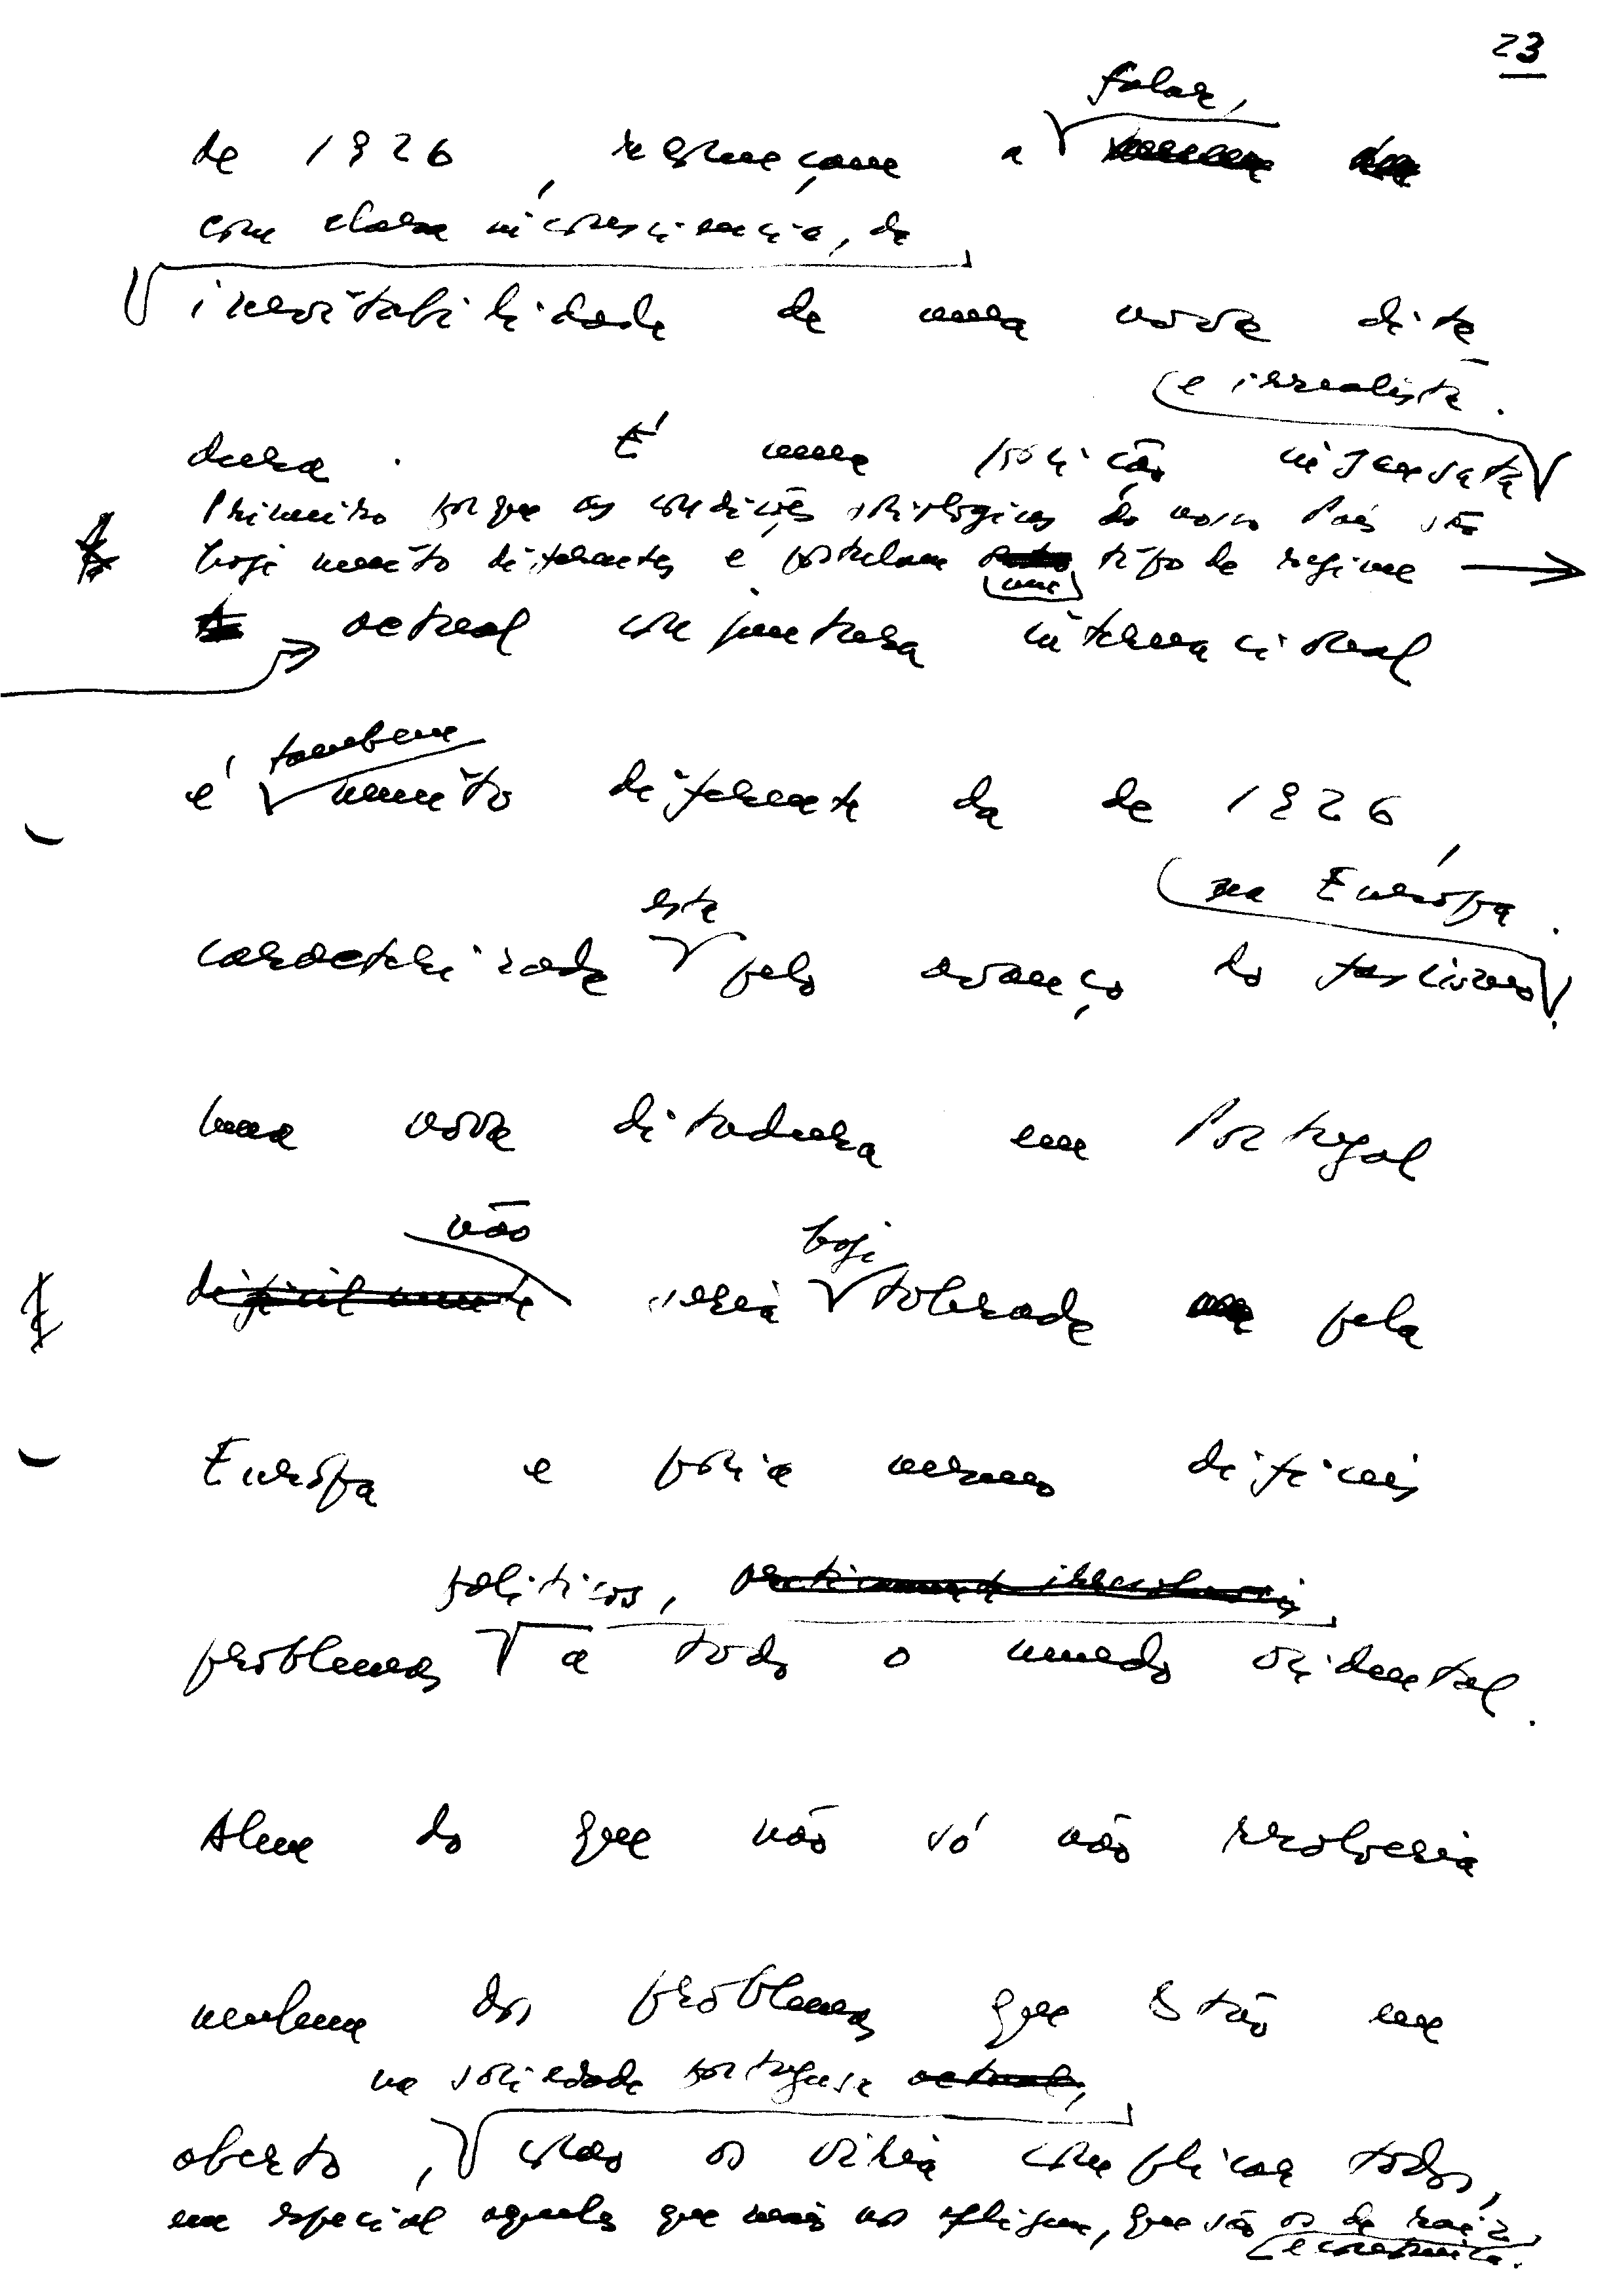 23
falar,
de 1926, recomeçam a
com clara inconsciência, da
inevitabilidade de uma nova dita
e irrealista.
dura. É uma posição insensata
Primeiro porque as condições sociológicas do nosso País são
hoje muito diferentes e postulam tipo de regime
um
actual conjuntura internacional
também
é muito diferente da de 1926,
na Európa.
esta
caracterizada pelo avanço do fascismo
Uma nova ditadura em Portugal
não hoje
dificilmente seria tolerada pela
Európa e poria mesmo difíceis
políticos, praticamente irresolúveis
problemas a todo o mundo ocidental.
Alem do que não só não resolveria
nenhum dos problemas que estão em
na sociedade portuguesa actual,
aberto, como os viria complicar todos,
em especial aqueles que mais nos afligem, que são os de raíz
económica.